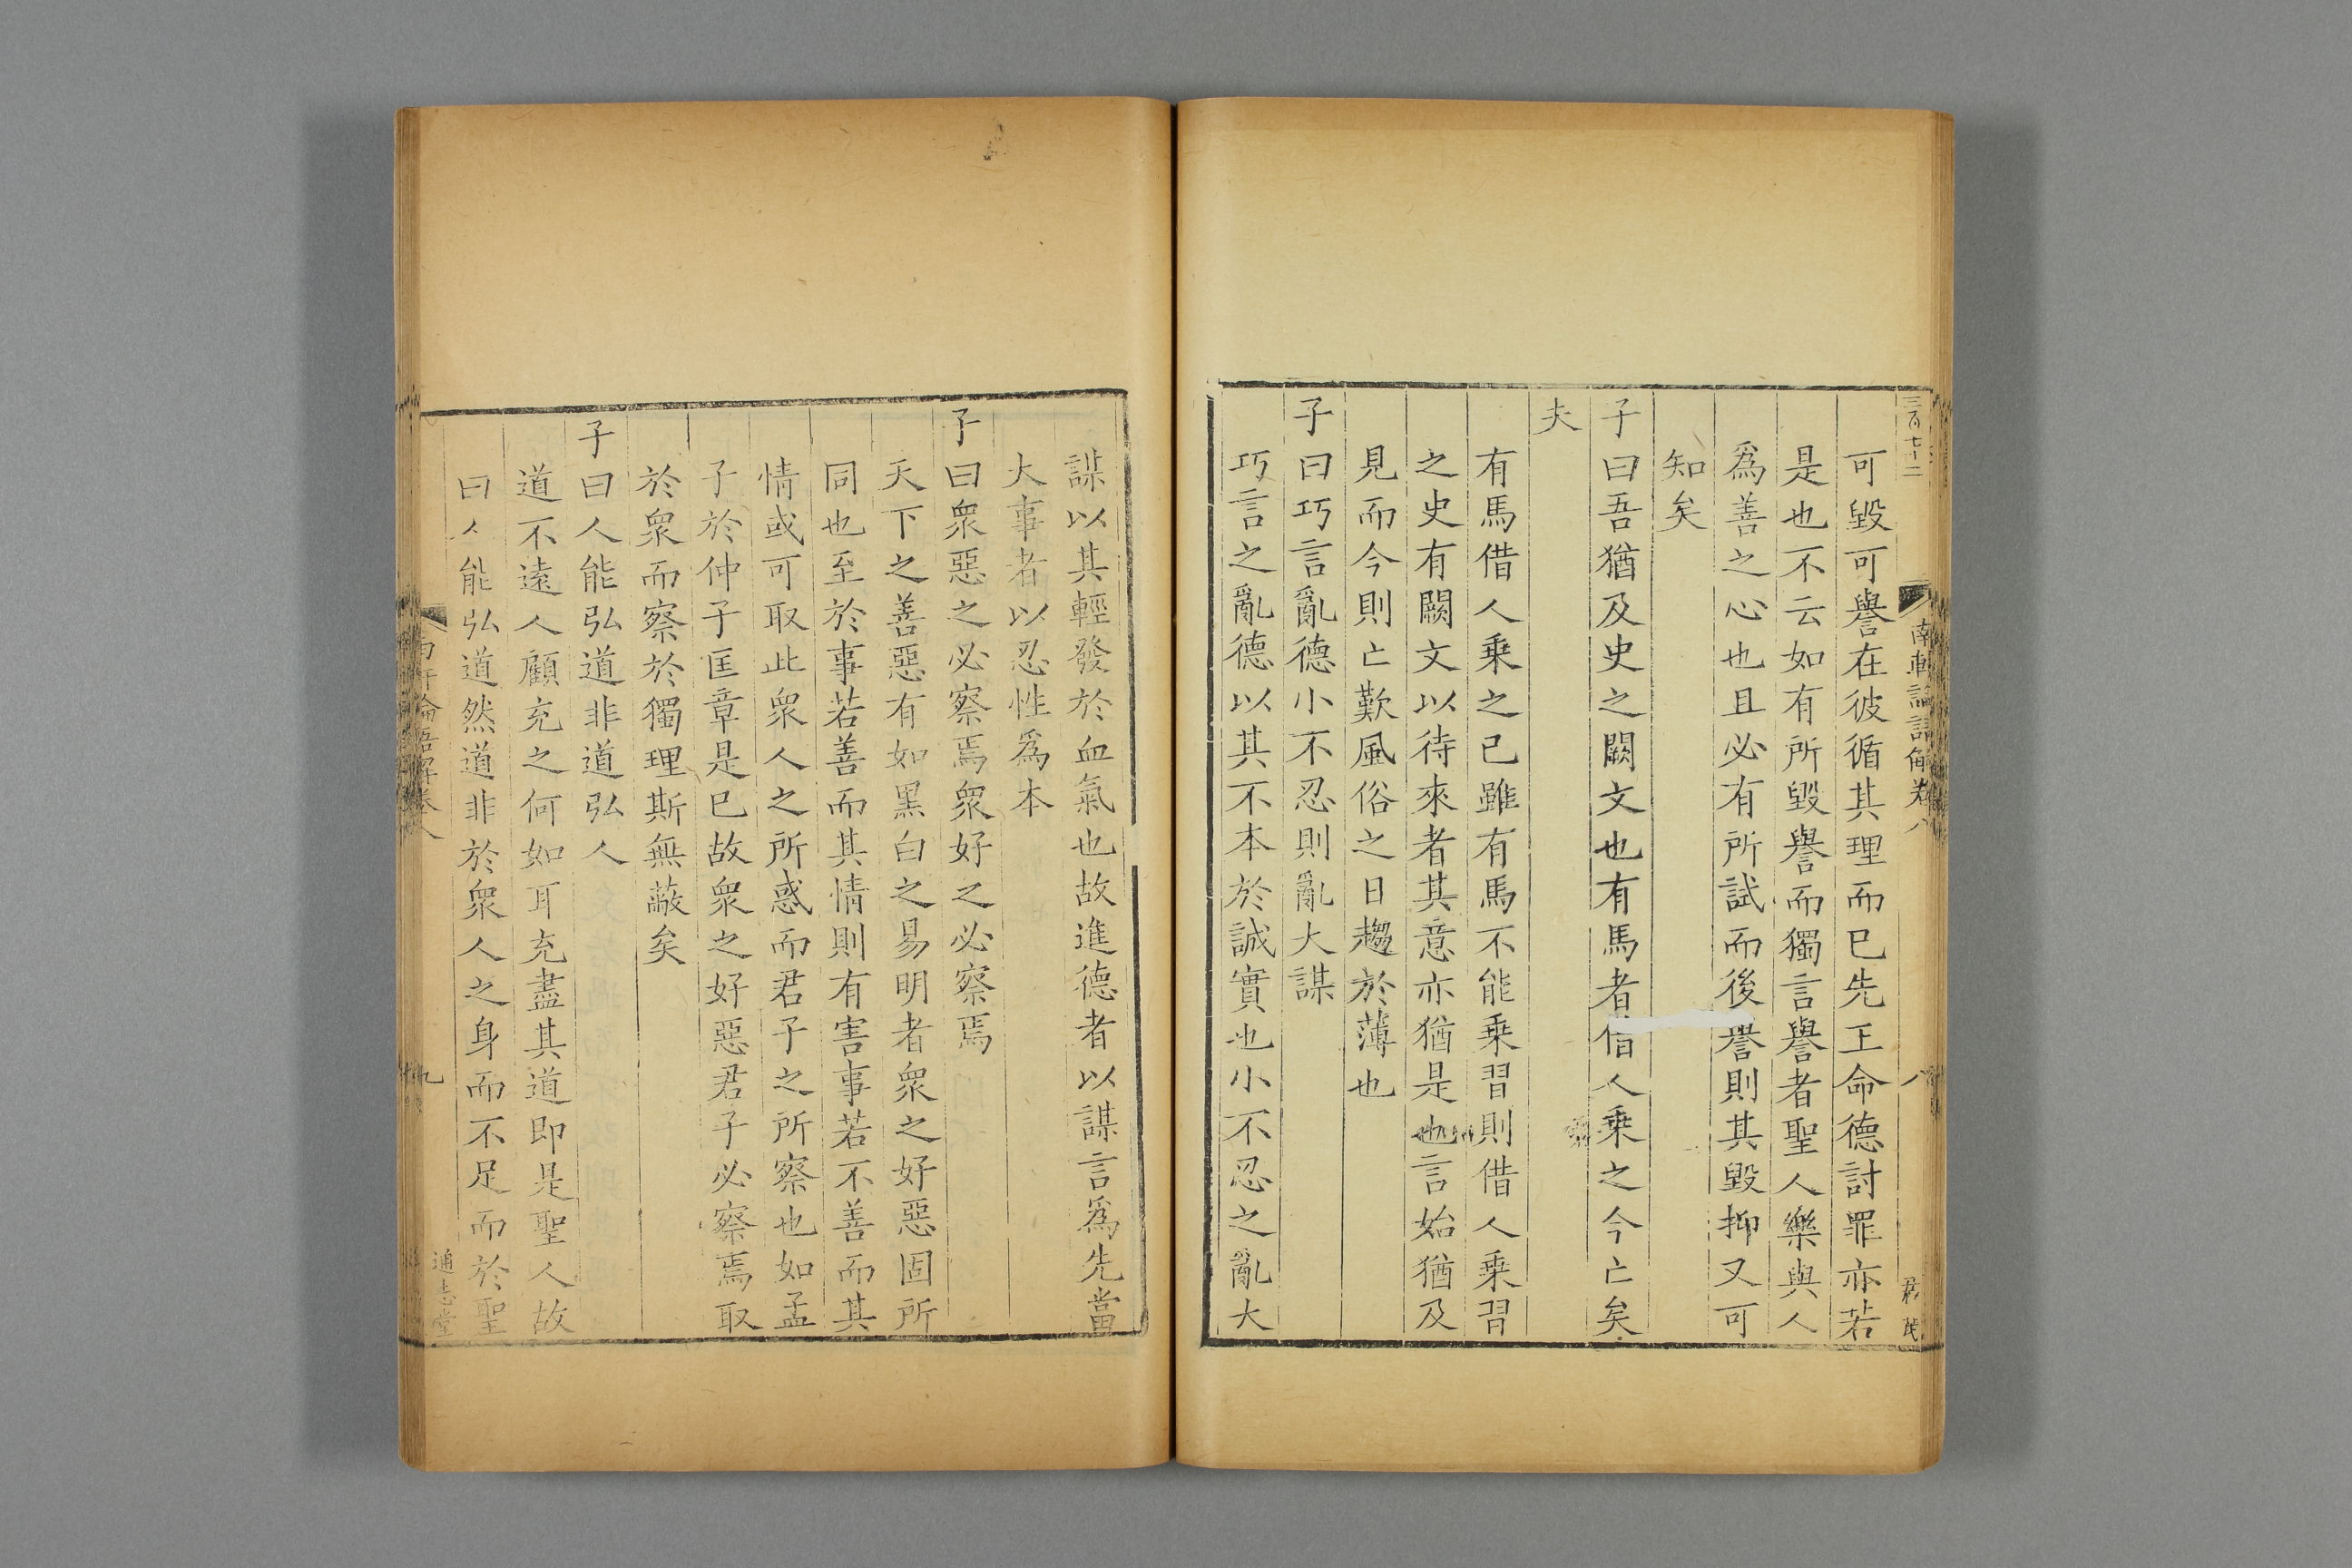 三百七十二
南軒論語解卷八
八
可毀可譽在彼循其理而已先王命德討罪亦若
是也不云如有所毀譽而獨言譽者聖人樂與人
爲善之心也且必有所試而後譽則其毀抑又可
知矣
子曰吾猶及史之闕文也有馬者借人乗之今亡矣
夫
有馬借人乗之已雖有馬不能乗習則借人乗習
之史有闕文以待來者其意亦猶是也言始猶及
見而今則亡歎風俗之日趨於薄也
子曰巧言亂德小不忍則亂大謀
巧言之亂德以其不本於誠實也小不忍之亂大
謀以其輕發於血氣也故進德者以謀言爲先當
大事者以忍性爲本
子曰衆惡之必察焉衆好之必察焉
天下之善惡有如黑白之易明者衆之好惡固所
同也至於事若善而其情則有害事若不善而其
情或可取此衆人之所惑而君子之所察也如孟
子於仲子匡章是已故衆之好惡君子必察焉取
於衆而察於獨理斯無蔽矣
子曰人能弘道非道弘人
道不遠人顧充之何如耳充盡其道即是聖人故
曰人能弘道然道非於衆人之身而不足而於聖
南軒論語解卷八
九
通志堂